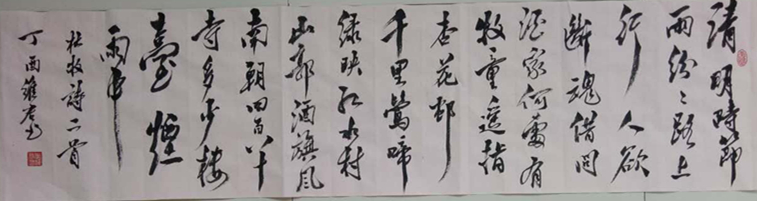 清明時節
雨紛々路上
行人欲
斷魂借問
酒家何處有
牧童遥指
杏花邨
千里鶯啼
绿映红水村
山郭酒旗风
南朝四百八十
寺多少楼
臺煙
雨中
杜牧诗二首
丁酉